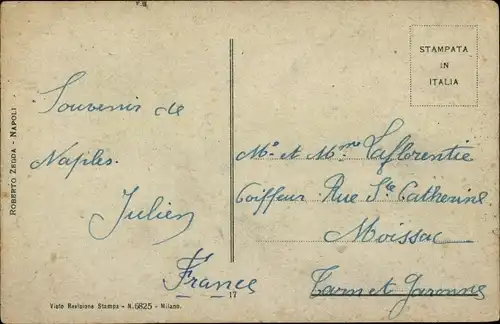 ROBERTO ZEDDA - NAPOLI
Souvenir de
Naples.
Julien
France
17
Visto Revisione Stampa - N. 6825 - Milano.
STAMPATA
IN
ITALIA
Mr. et Mme Laflorentie
Coiffeur Rue Ste Catherine
Moissac
Tarn et Garonne